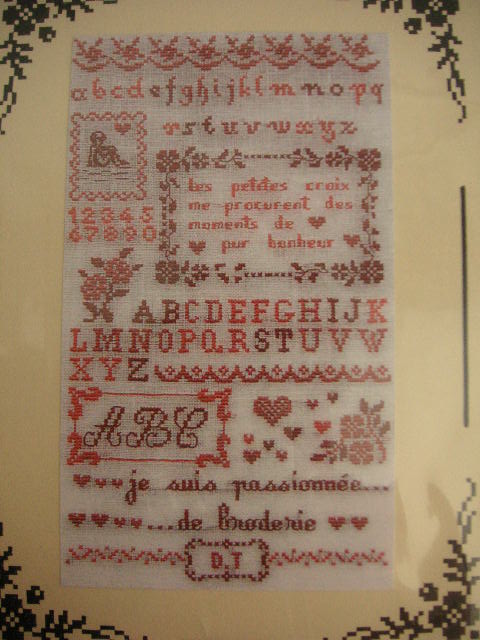 abcdefghijklmnopq
rstuvwxyz
Les petites croix
me procurent des
moments de
pur bonheur
12345
67890
ABCDEFGHIJK
LMNOPQRSTUVW
XYZ
ABC
je suis passionnée...
...de Broderie
D.T